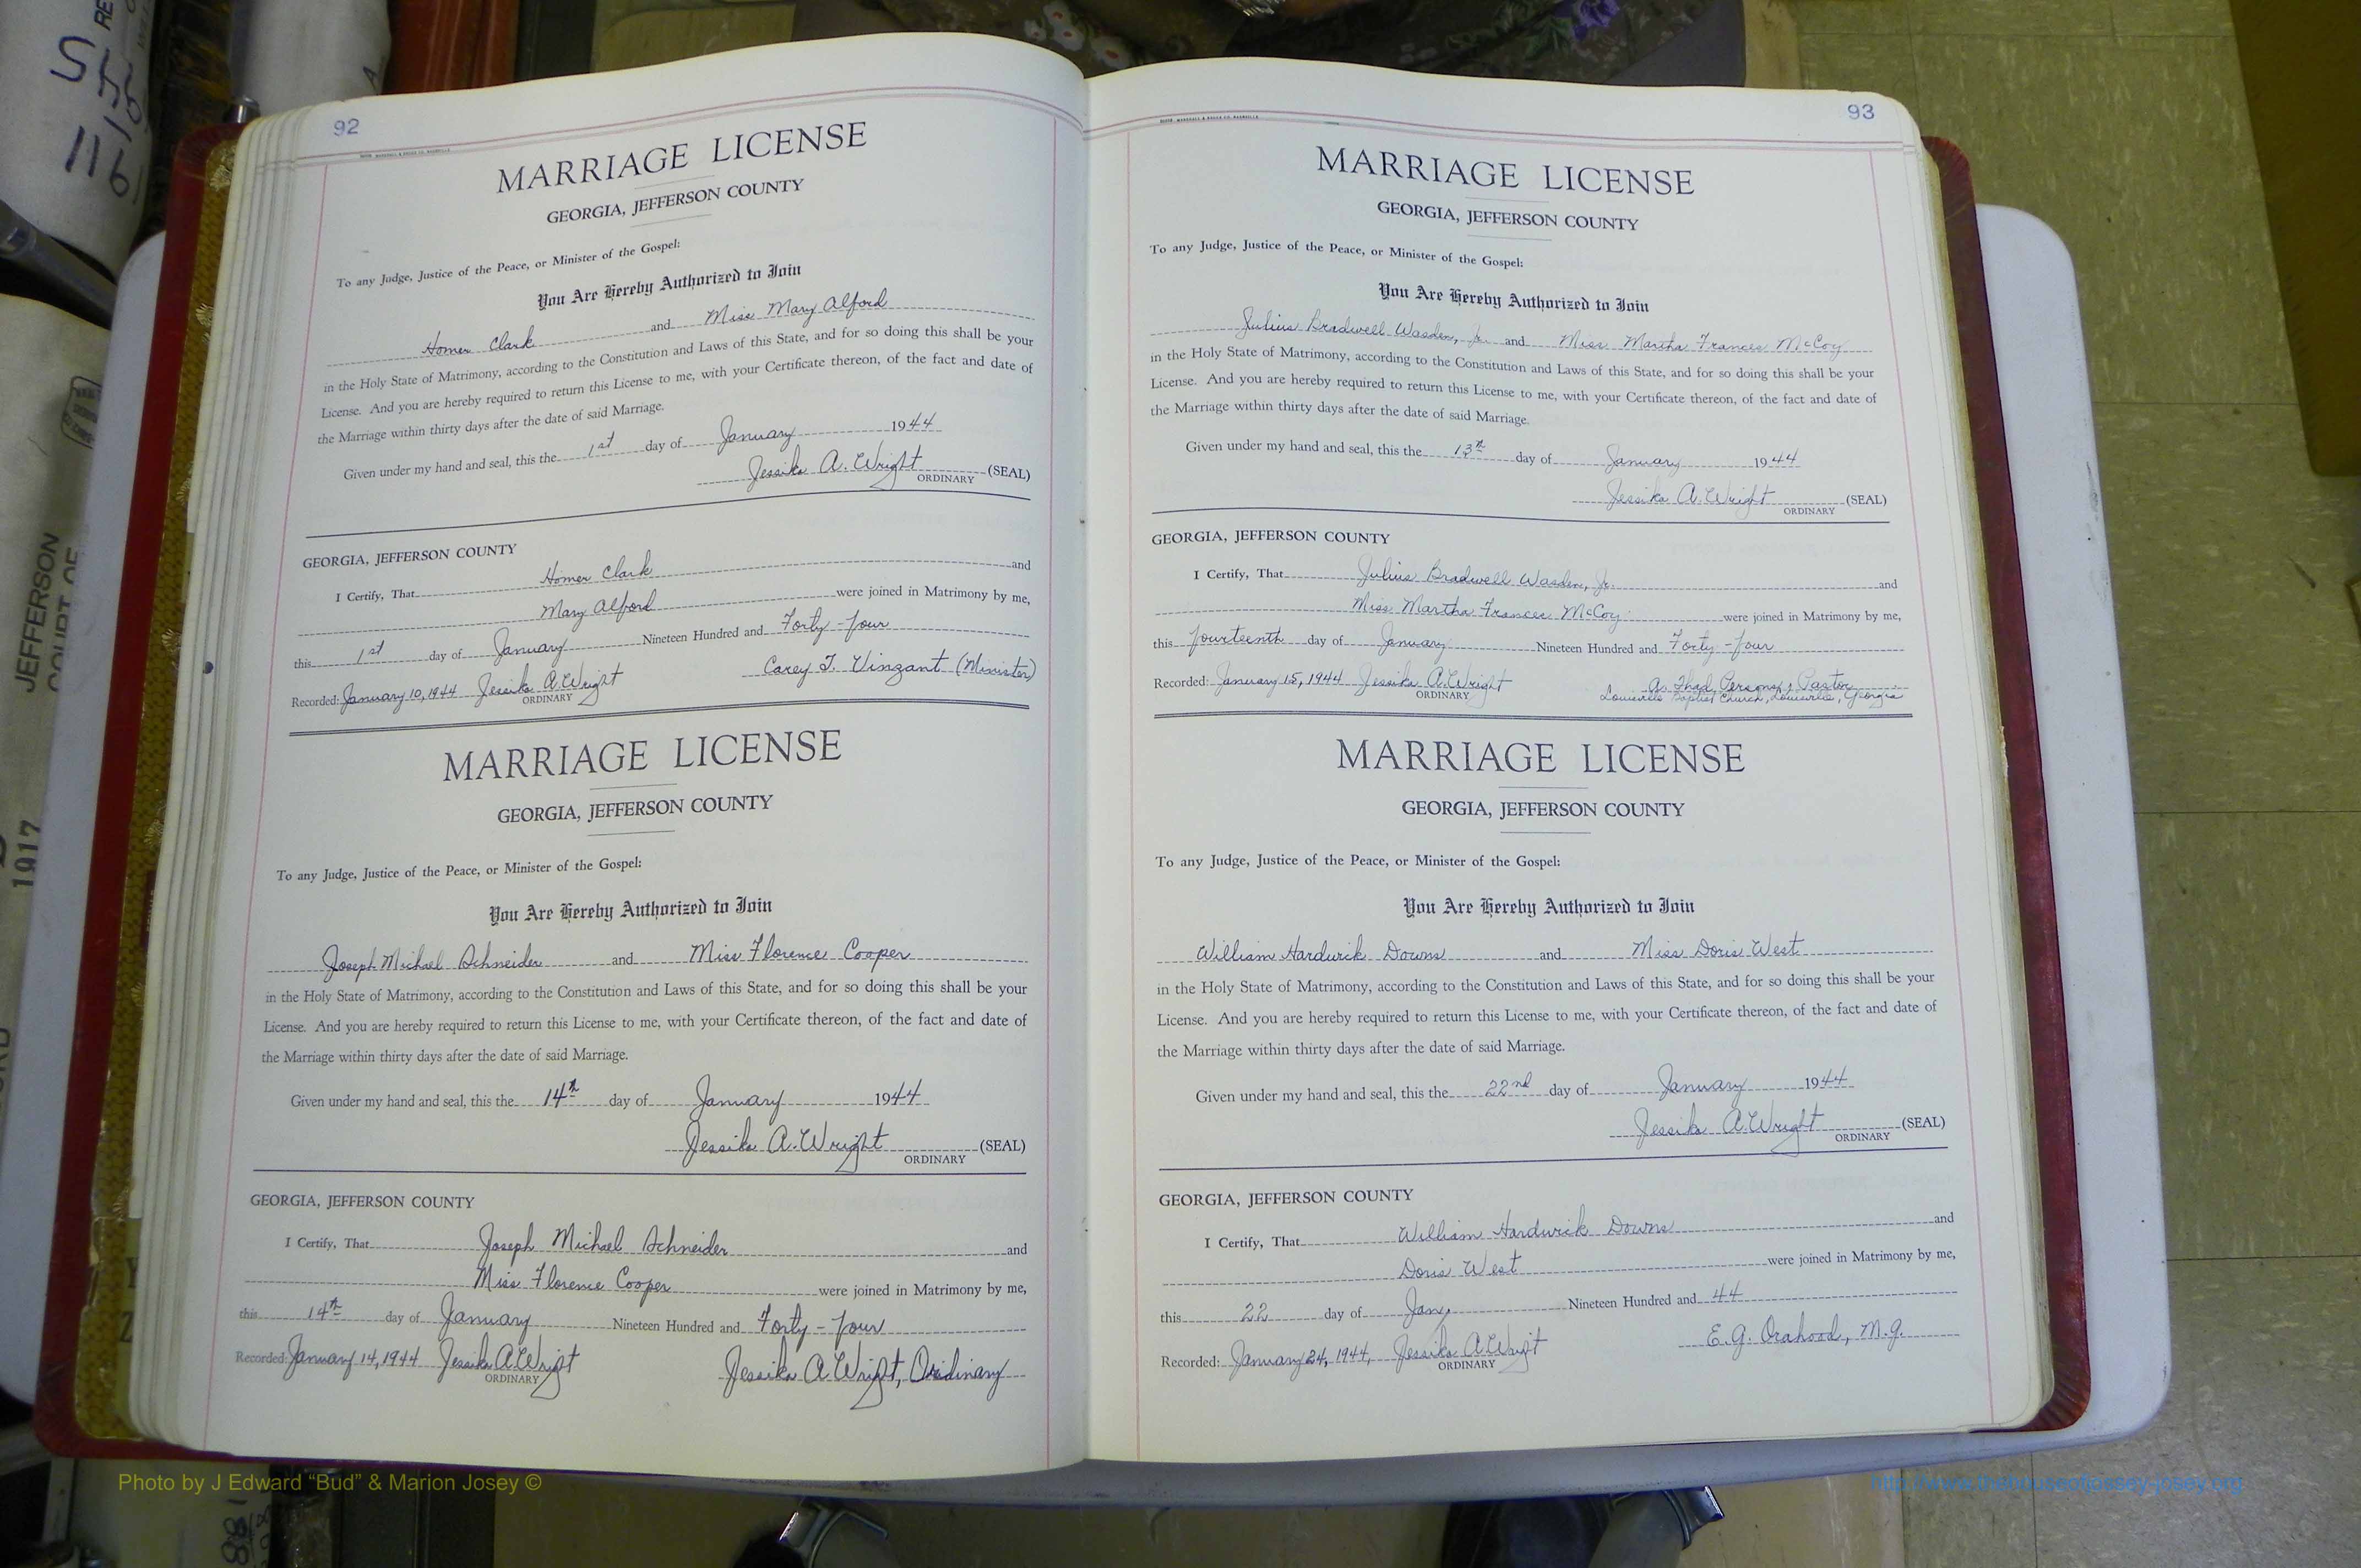 92
MARRIAGE LICENSE
GEORGIA, JEFFERSON COUNTY
To any Judge, Justice of the Peace, or Minister of the Gospel:
You Are Hereby Authorized to Join
Homer Clark and Miss Mary Alford
in the Holy State of Matrimony, according to the Constitution and Laws of this State, and for so doing this shall be your
License. And you are hereby required to return this License to me, with your Certificate thereon, of the fact and date of
the Marriage within thirty days after the date of said Marriage.
Given under my hand and seal, this the 1st day of January 1944
Jessika A. Wright (SEAL)
ORDINARY
GEORGIA, JEFFERSON COUNTY
I Certify, That Homer Clark and
Mary Alford were joined in Matrimony by me,
this 1st day of January Nineteen Hundred and Forty-four
Carey T. Vinzant (Minister)
Recorded: January 10, 1944 Jessika A. Wright
ORDINARY
MARRIAGE LICENSE
GEORGIA, JEFFERSON COUNTY
To any Judge, Justice of the Peace, or Minister of the Gospel:
You Are Hereby Authorized to Join
Joseph Michael Schneider and Miss Florence Cooper
in the Holy State of Matrimony, according to the Constitution and Laws of this State, and for so doing this shall be your
License. And you are hereby required to return this License to me, with your Certificate thereon, of the fact and date of
the Marriage within thirty days after the date of said Marriage.
Given under my hand and seal, this the 14th day of January 1944
Jessika A. Wright (SEAL)
ORDINARY
GEORGIA, JEFFERSON COUNTY
I Certify, That Joseph Michael Schneider and
Miss Florence Cooper were joined in Matrimony by me,
this 14th day of January Nineteen Hundred and Forty-four
Recorded: January 14, 1944 Jessika A. Wright Jessika A. Wright, Ordinary
ORDINARY
93
MARRIAGE LICENSE
GEORGIA, JEFFERSON COUNTY
To any Judge, Justice of the Peace, or Minister of the Gospel:
You Are Hereby Authorized to Join
Julius Bradwell Wasden, Jr. and Miss Martha Frances McCoy
in the Holy State of Matrimony, according to the Constitution and Laws of this State, and for so doing this shall be your
License. And you are hereby required to return this License to me, with your Certificate thereon, of the fact and date of
the Marriage within thirty days after the date of said Marriage.
Given under my hand and seal, this the 13th day of January 1944
Jessika A. Wright (SEAL)
ORDINARY
GEORGIA, JEFFERSON COUNTY
I Certify, That Julius Bradwell Wasden, Jr. and
Miss Martha Frances McCoy were joined in Matrimony by me,
this fourteenth day of January Nineteen Hundred and Forty-four
Recorded: January 15, 1944 Jessika A. Wright A. Thad Persons, Pastor
ORDINARY Louisville Baptist Church, Louisville, Georgia
MARRIAGE LICENSE
GEORGIA, JEFFERSON COUNTY
To any Judge, Justice of the Peace, or Minister of the Gospel:
You Are Hereby Authorized to Join
William Hardwick Downs and Miss Doris West
in the Holy State of Matrimony, according to the Constitution and Laws of this State, and for so doing this shall be your
License. And you are hereby required to return this License to me, with your Certificate thereon, of the fact and date of
the Marriage within thirty days after the date of said Marriage.
Given under my hand and seal, this the 22nd day of January 1944
Jessika A. Wright (SEAL)
ORDINARY
GEORGIA, JEFFERSON COUNTY
I Certify, That William Hardwick Downs and
Doris West were joined in Matrimony by me,
this 22 day of Jan. Nineteen Hundred and 44
E. G. Orahood, M.G.
Recorded: January 24, 1944, Jessika A. Wright
ORDINARY
JEFFERSON
COURT OF
1917
Photo by J Edward “Bud” & Marion Josey ©
http://www.thehouseofjossey-josey.org